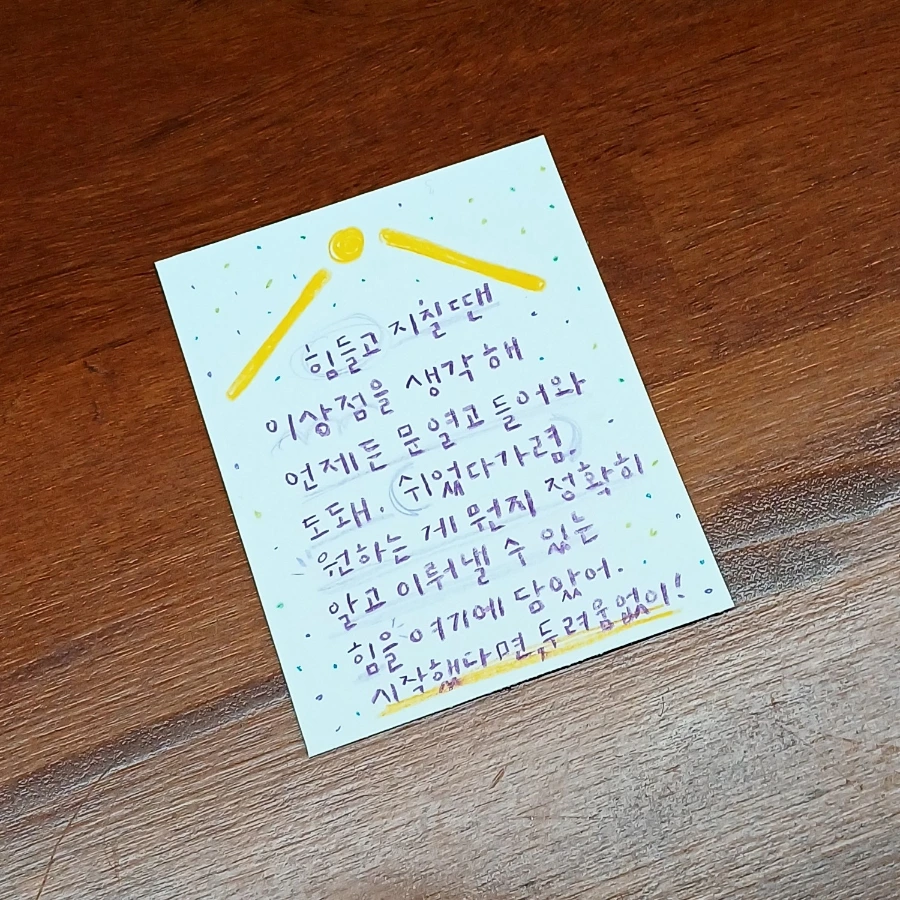 힘들고 지칠 땐
이상점을 생각해
언제든 문열고 들어와
도돼. 쉬었다가렴.
원하는 게 뭔지 정확히
알고 이뤄낼 수 있는
힘을 여기에 담았어.
시작했다면 두려움없이!